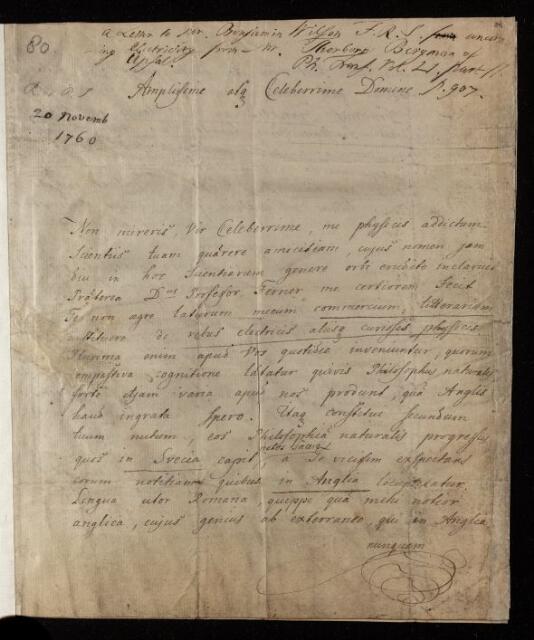 80.
a Letter to Mr. Benjamin Wilson F.R.S. concern
ing Electricity from Mr. Thorbern Bergman of
Upsal. Ph. Trans. Vol. LI. part II
p. 907.
R at R S
20 Novemb
1760
Amplissime atq Celeberrime Domine
Non mireris, Vir Celeberrime, me physicis addictum
Scientiis tuam quærere amicitiam, cujus nomen jam
diu in hoc Scientiarum genere orbi erudito inclaruit
Præterea Dnus Professor Ferner me certiorem fecit
Te non ægre laturum mecum commercium litterarium
instituere de rebus electricis aliisq curiosis physicis
Plurima enim apud Vos quotidie inveniuntur, quorum
cognitione lætatur quivis Philosophus naturalis
forte etjam varia apud nos prodeunt, quæ Anglis
haud ingrata spero. Itaq constitui secundum
tuum nutum, eos Philosophiæ naturalis progressus
quos in Svecia capit a Te vicissim exspectans
eorum notitiam quibus in Anglia locupletatur.
Lingua utor Romana, quippe qui metu noteor
anglica, cujus genius ab exterraneo, qui in Anglia
nunquam